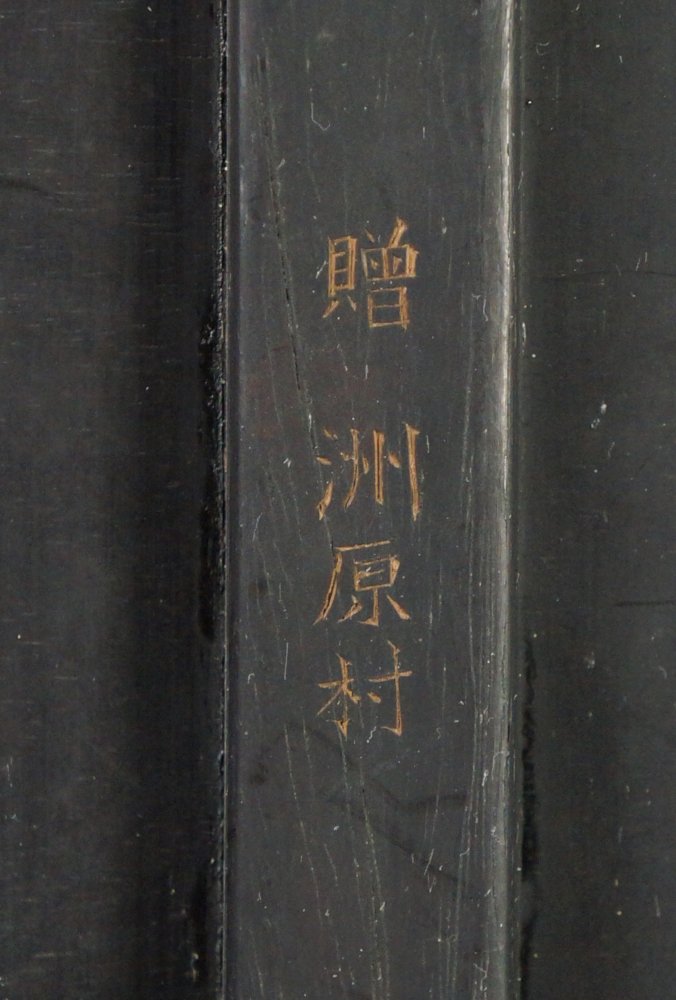 贈 洲原村